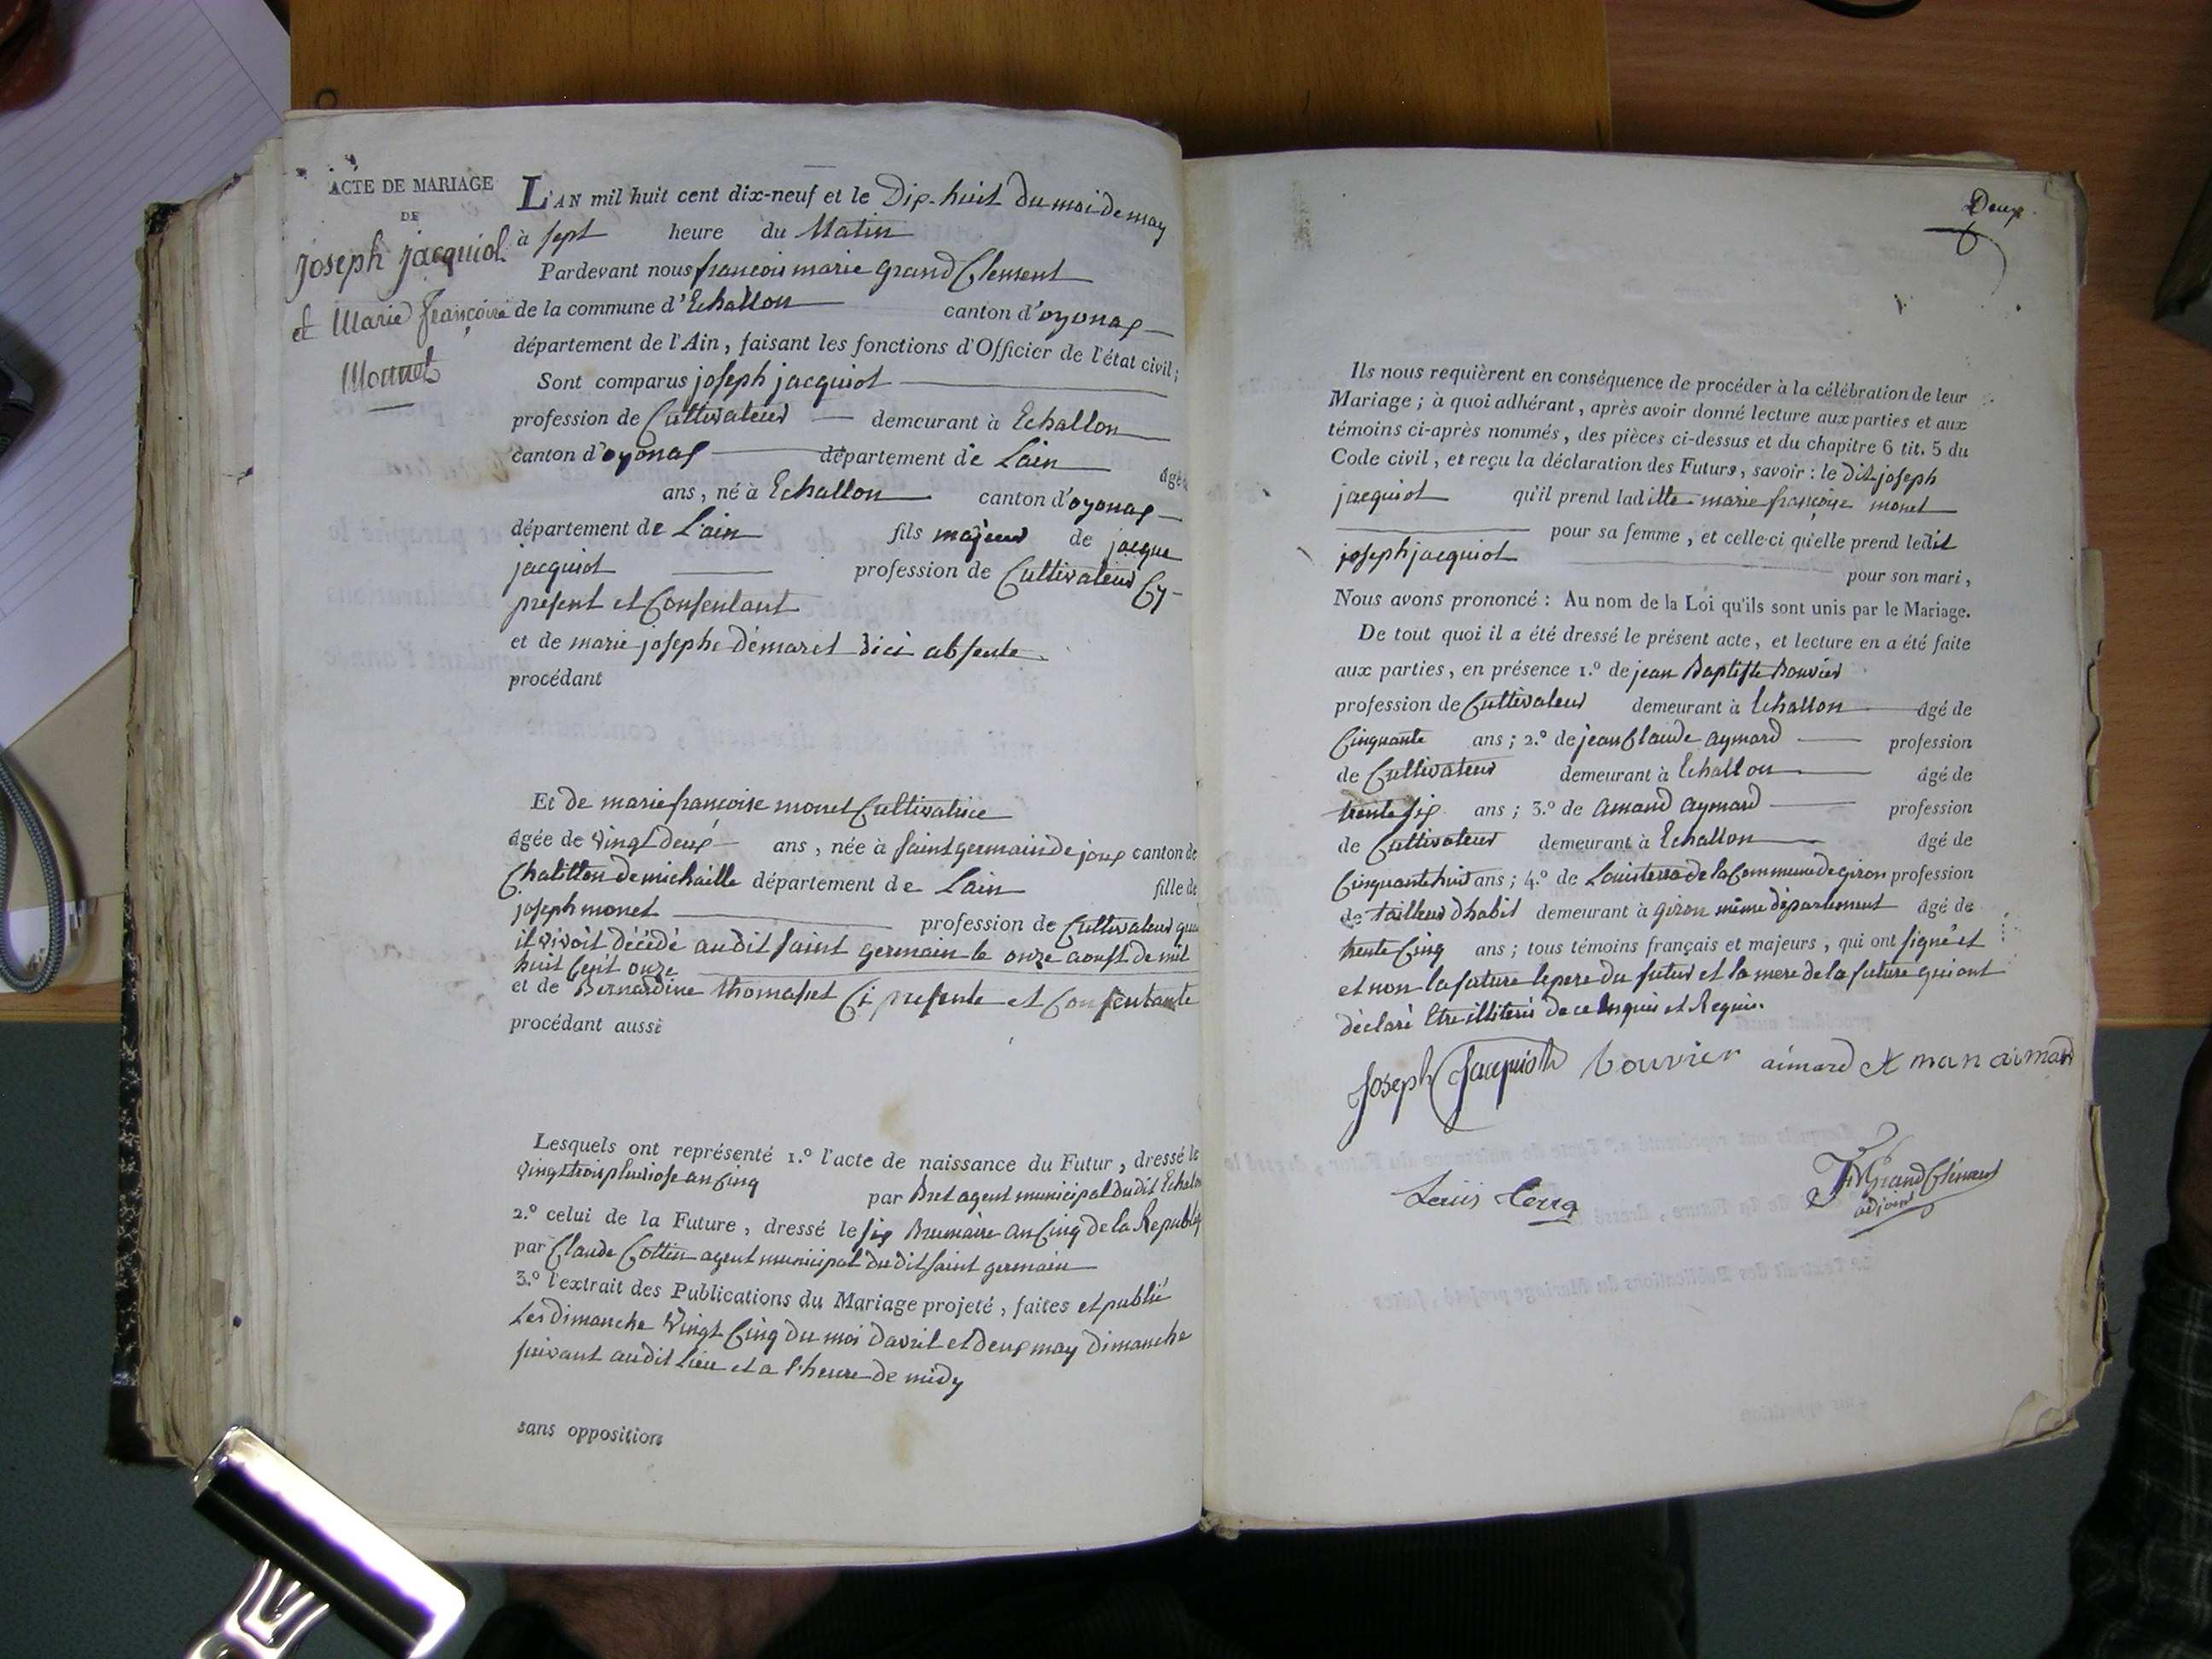 ACTE DE MARIAGE
DE
Joseph Jacquiot
et Marie Françoise
Monnet
L'AN mil huit cent dix-neuf et le Dix-huit du moi de may
à sept heure du Matin
Pardevant nous francois marie grand Clement
de la commune d'Echallon canton d'oyonax
département de l'Ain, faisant les fonctions d'Officier de l'état civil;
Sont comparus joseph jacquiot
profession de Cultivateur demeurant à Echallon
canton d'oyonax département de Lain âgé
ans, né à Echallon canton d'oyonax
département de L'ain fils majeur de jacque
jacquiot profession de Cultivateur Cy-
present et Consentant
et de marie josephe démaret dici absente
procédant
Et de marie françoise monet Cultivatrice
âgée de vingt deux ans, née à saint germain de joux canton de
Chatillon de michaille département de Lain fille de
joseph monet profession de Cultivateur qua
il vivoit décédé audit saint germain le onze aoust de mil
huit Cent onze
et de Bernardine thomasset Ci presente et Consentante
procédant aussi
Lesquels ont représenté 1.º l'acte de naissance du Futur, dressé le
vingt trois pluviose an Cinq par Bret agent municipal dudit Echalon
2.º celui de la Future, dressé le six Brumaire an Cinq de la Republiq
par Claude Cottin agent municipal dudit saint germain
3.º l'extrait des Publications du Mariage projeté, faites et publié
Les dimanche vingt Cinq du moi davril et deux may dimanche
suivant audit lieu et a l'heure de midy
sans opposition
Deux
Ils nous requièrent en conséquence de procéder à la célébration de leur
Mariage; à quoi adhérant, après avoir donné lecture aux parties et aux
témoins ci-après nommés, des pièces ci-dessus et du chapitre 6 tit. 5 du
Code civil, et reçu la déclaration des Futurs, savoir: le dit joseph
jacquiot qu'il prend laditte marie françoise monet
pour sa femme, et celle-ci qu'elle prend ledit
joseph jacquiot pour son mari,
Nous avons prononcé: Au nom de la Loi qu'ils sont unis par le Mariage.
De tout quoi il a été dressé le présent acte, et lecture en a été faite
aux parties, en présence 1.º de jean Baptiste Bouvier
profession de Cultivateur demeurant à Echallon âgé de
Cinquante ans; 2.º de jean Claude aymard profession
de Cultivateur demeurant à Echallon âgé de
trente six ans; 3.º de amand aymard profession
de Cultivateur demeurant à Echallon âgé de
Cinquante huit ans; 4.º de Louis terra de la Commune de giron profession
de tailleur d'habit demeurant à giron même département âgé de
trente Cinq ans; tous témoins français et majeurs, qui ont signé et
et non la future le pere du futur et la mere de la future qui ont
déclaré Etre illiterés de ce Enquis et Requis.
Joseph Jacquioth bouvier aimard A man aimard
Louis terra
FM Grand Clément
adjoint